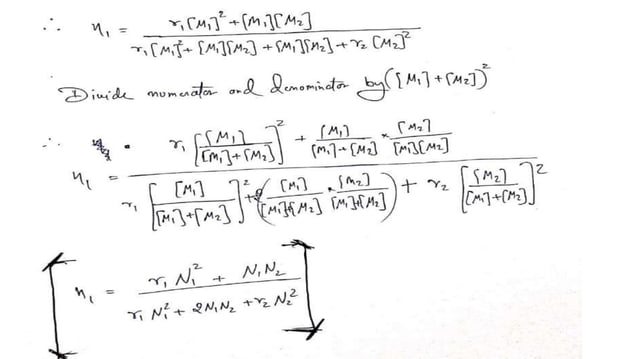 ∴ n₁ = (r₁[M₁]² + [M₁][M₂]) / (r₁[M₁]² + [M₁][M₂] + [M₁][M₂] + r₂[M₂]²)
Divide numerator and denominator by ([M₁] + [M₂])²
∴ n₁ = (r₁ [[M₁] / ([M₁] + [M₂])]² + [M₁] / ([M₁] + [M₂]) × [M₂] / ([M₁][M₂])) / (r₁ [[M₁] / ([M₁] + [M₂])]² + 2([M₁] / ([M₁] + [M₂]) × [M₂] / ([M₁] + [M₂])) + r₂ [[M₂] / ([M₁] + [M₂])]²)
n₁ = (r₁ N₁² + N₁N₂) / (r₁ N₁² + 2N₁N₂ + r₂ N₂²)